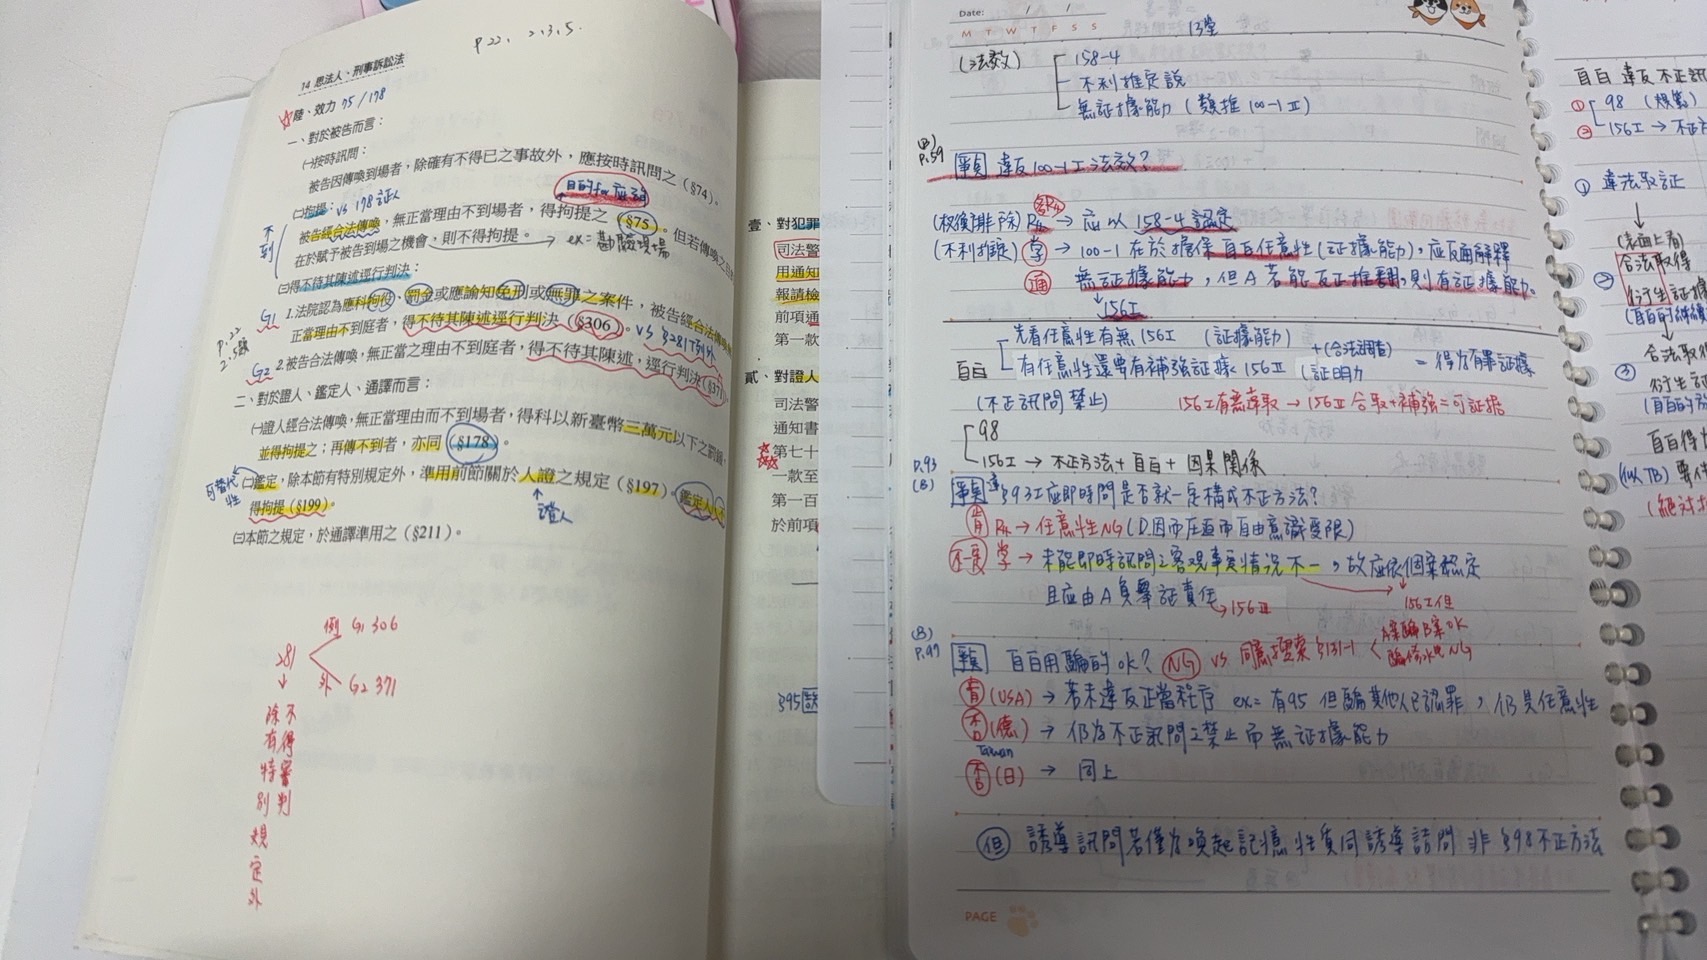 P.22. 2.3.5.
14 思法人、刑事訴訟法
陸、效力 75/178
一、對於被告而言：
㈠按時訊問：
被告因傳喚到場者，除確有不得已之事故外，應按時訊問之（§74）。
㈡拘提： vs 178證人
目的for應訊
不到
被告經合法傳喚，無正當理由不到場者，得拘提之（§75）。但若傳喚之目
在於賦予被告到場之機會，則不得拘提。 → ex=勘驗現場
㈢得不待其陳述逕行判決：
G1
1.法院認為應科拘役、罰金或應諭知免刑或無罪之案件，被告經合法傳喚
正當理由不到庭者，得不待其陳述逕行判決（§306）。 vs §281T列外
P.22
G2 2.被告合法傳喚，無正當之理由不到庭者，得不待其陳述，逕行判決（§371
二、對於證人、鑑定人、通譯而言：
㈠證人經合法傳喚，無正當理由而不到場者，得科以新臺幣三萬元以下之罰鍰，
並得拘提之；再傳不到者，亦同（§178）。
可替代性
㈡鑑定，除本節有特別規定外，準用前節關於人證之規定（§197）。鑑定人，不
得拘提（§199）。
證人
㈢本節之規定，於通譯準用之（§211）。
281
例 G1 306
外 G2 371
不得審判
除有特別規定外
壹、對犯罪
司法警
用通知
報請檢
前項通
第一款
貳、對證人
司法警
通知書
第七十
一款至
第一百
於前項
§95
Date: / /
M T W T F S S
13堂
(法效)
158-4
不利推定說
無証據能力（類推100-1Ⅱ）
(B)
P.59
爭點 違反100-1Ⅰ法效？
(權衡排除) 多RH → 应以158-4認定
(不利推定) 學 → 100-1在於擔保自白任意性(証據能力)，应反面解釋
通 無証據能力，但A若能反正推翻，則有証據能力。
156Ⅰ
自白
先看任意性有無 156Ⅰ (証據能力)
有任意性還要有補強証據 156Ⅱ (証明力
+(合法調查)
= 得为有罪証據
(不正訊問禁止)
156Ⅰ有無違取 → 156Ⅱ合取+補強=可証据
98
156Ⅰ → 不正方法+自白+因果關係
P.93
(B)
爭點 違§93Ⅰ应即時問是否就一定構成不正方法？
肯 RH → 任意性NG (D.因而压迫而自由意識受限)
不一定 學 → 未能即時訊問之客观事實情况不一，故应依個案認定
且应由A負舉証責任 → 156Ⅲ
156Ⅰ但
(B)
P.97
爭點 自白用騙的ok？ NG vs 同意搜索§131-1
A案騙B案OK
騙修水电NG
肯(USA) → 若未違反正當程序 ex=有95但騙其他人已認罪，仍具任意性
否(德) → 仍为不正訊問之禁止而無証據能力
Taiwan
否(日) → 同上
但 誘導訊問若僅为喚起記憶性質同誘導詰問非§98不正方法
PAGE
自白違反不正訊
① 98 (規範)
② 156Ⅰ → 不正方
① 違法取証
② (表面上看)
合法取得
衍生証據
③ 合法取得
衍生証
(絕對排